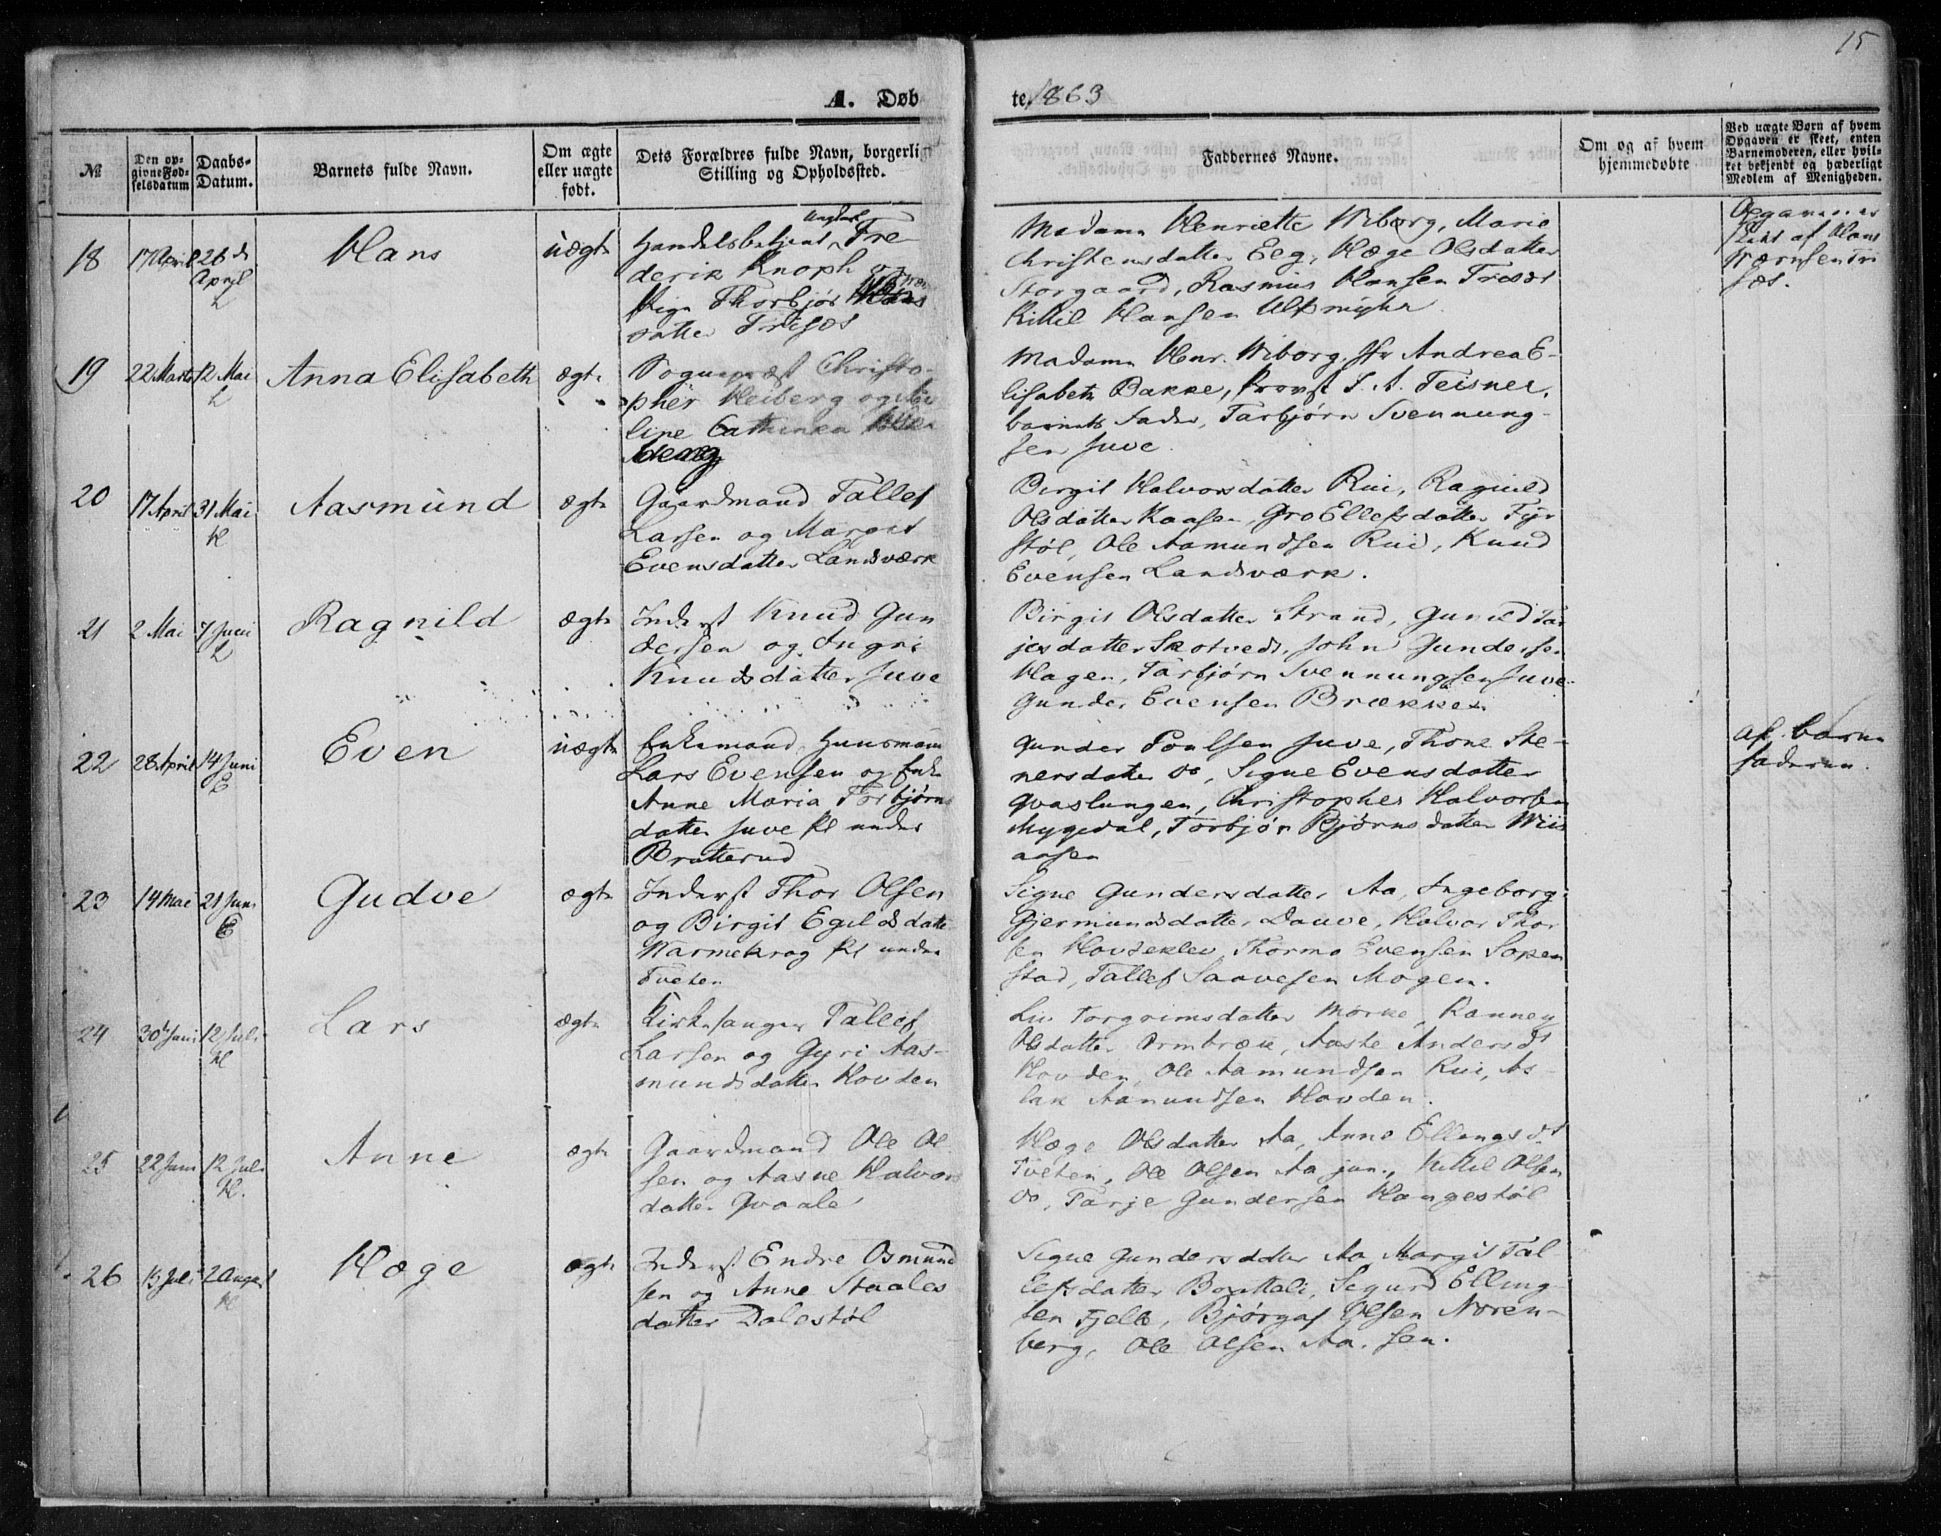 15
A. Døb
te 1863
№
Den op-
givne Fød-
selsdatum
Daabs-
Datum.
Barnets fulde Navn.
Om ægte
eller uægte
født.
Dets Forældres fulde Navn, borgerlig
Stilling og Opholdssted.
Faddernes Navne.
Om og af hvem
hjemmedøbte
Ved uægte Børn af hvem
Opgaven er skeet, enten
Barnemoderen, eller hvil-
ket bekjendt og hæderligt
Medlem af Menigheden.
18
17 April
26 d
April
L
Hans
uægte
Ungkarl
Handelsbetjent Fre-
derik Knoph og
Pige Thorbjør
datter Trisæt
Madame Henriette Wiborg, Marie
Christensdatter Eeg, Hæge Olsdatter
Storgaard, Rasmus Hansen
Kittil Hansen
af Hans
19
22 Marts
12 Mai
L
Anna Elisabeth
ægte
Sognepræst Christo-
pher Heiberg og
line Cathinka
Madame Henr. Wiborg, Jfr Andrea E-
lisabeth Bakke, Provst J. A. Teisner,
barnets Fader, Tarbjørn Svennung-
sen Juve
20
17 April
31 Mai
H
Aasmund
ægte
Gaardmand Tallef
Larsen og Margit
Evensdatter Landsværk
Birgit Halvorsdatter Rui, Ragnild
Olsdatter Kaasen, Gro Ellefsdatter Fyr
støl, Ole Aamundsen Rui, Knud
Evensen Landsværk.
21
2 Mai
7 Juni
L
Ragnild
ægte
Inderst Knud Gun
dersen og Ingri
Knudsdatter Juve
Birgit Olsdatter Strand, Gunild Tar
jesdatter Skotvedt, John Gundersen
Hagen, Tarbjørn Svennungsen Juve
Gunder Evensen Brække
22
28 April
14 Juni
E
Even
uægte
Enkemand, Huusmann
Lars Evensen og Enke
Anne Maria Torbjørns
datter Juve Pl under
Bratterud
Gunder Poulsen Juve, Thone Ste-
nersdatter do, Signe Evensdatter
Qvaslungen, Christopher Halvorsen
Mygedal, Torbjør Bjørnsdatter Wiis
aasen
af barne
faderen.
23
14 Mai
21 Juni
E
Gudve
ægte
Inderst Thor Olsen
og Birgit Egildsdatter
Warmekrag Pl under
Tveten
Signe Gundersdatter Aa, Ingeborg
Gjermundsdatter Dauve, Halvor Thor
sen Thormo Evensen
stad, Tallef Saavesen Mogen.
24
30 Juni
12 Juli
H
Lars
ægte
Kirkesanger Tallef
Larsen og Gyri Aas-
mundsdatter Hovden
Liv Torgrimsdatter Mørke, Ranney
Olsdatter Ormbræk, Aaste Andersdt
Hovden, Ole Aamundsen Rui, As-
lak Aamundsen Hovden.
25
22 Juni
12 Juli
H.
Anne
ægte
Gaardmand Ole Ol
sen og Aasne Halvors
datter Qvaale
Hæge Olsdatter Aa, Anne Ellengsdt
Tveten, Ole Olsen Aa jun., Kittil Olsen
do, Tarje Gundersen Haugestøl
26
15 Juli
2 August
H
Hæge
ægte
Inderst Endre Osmund
sen og Anne Staales
datter Dalestøl
Signe Gundersdatter Aa, Margit Tal
lefsdatter Brattali, Segurd Elling-
sen Fjelle, Bjørgaf Olsen Noren-
berg, Ole Olsen Aa. sen.